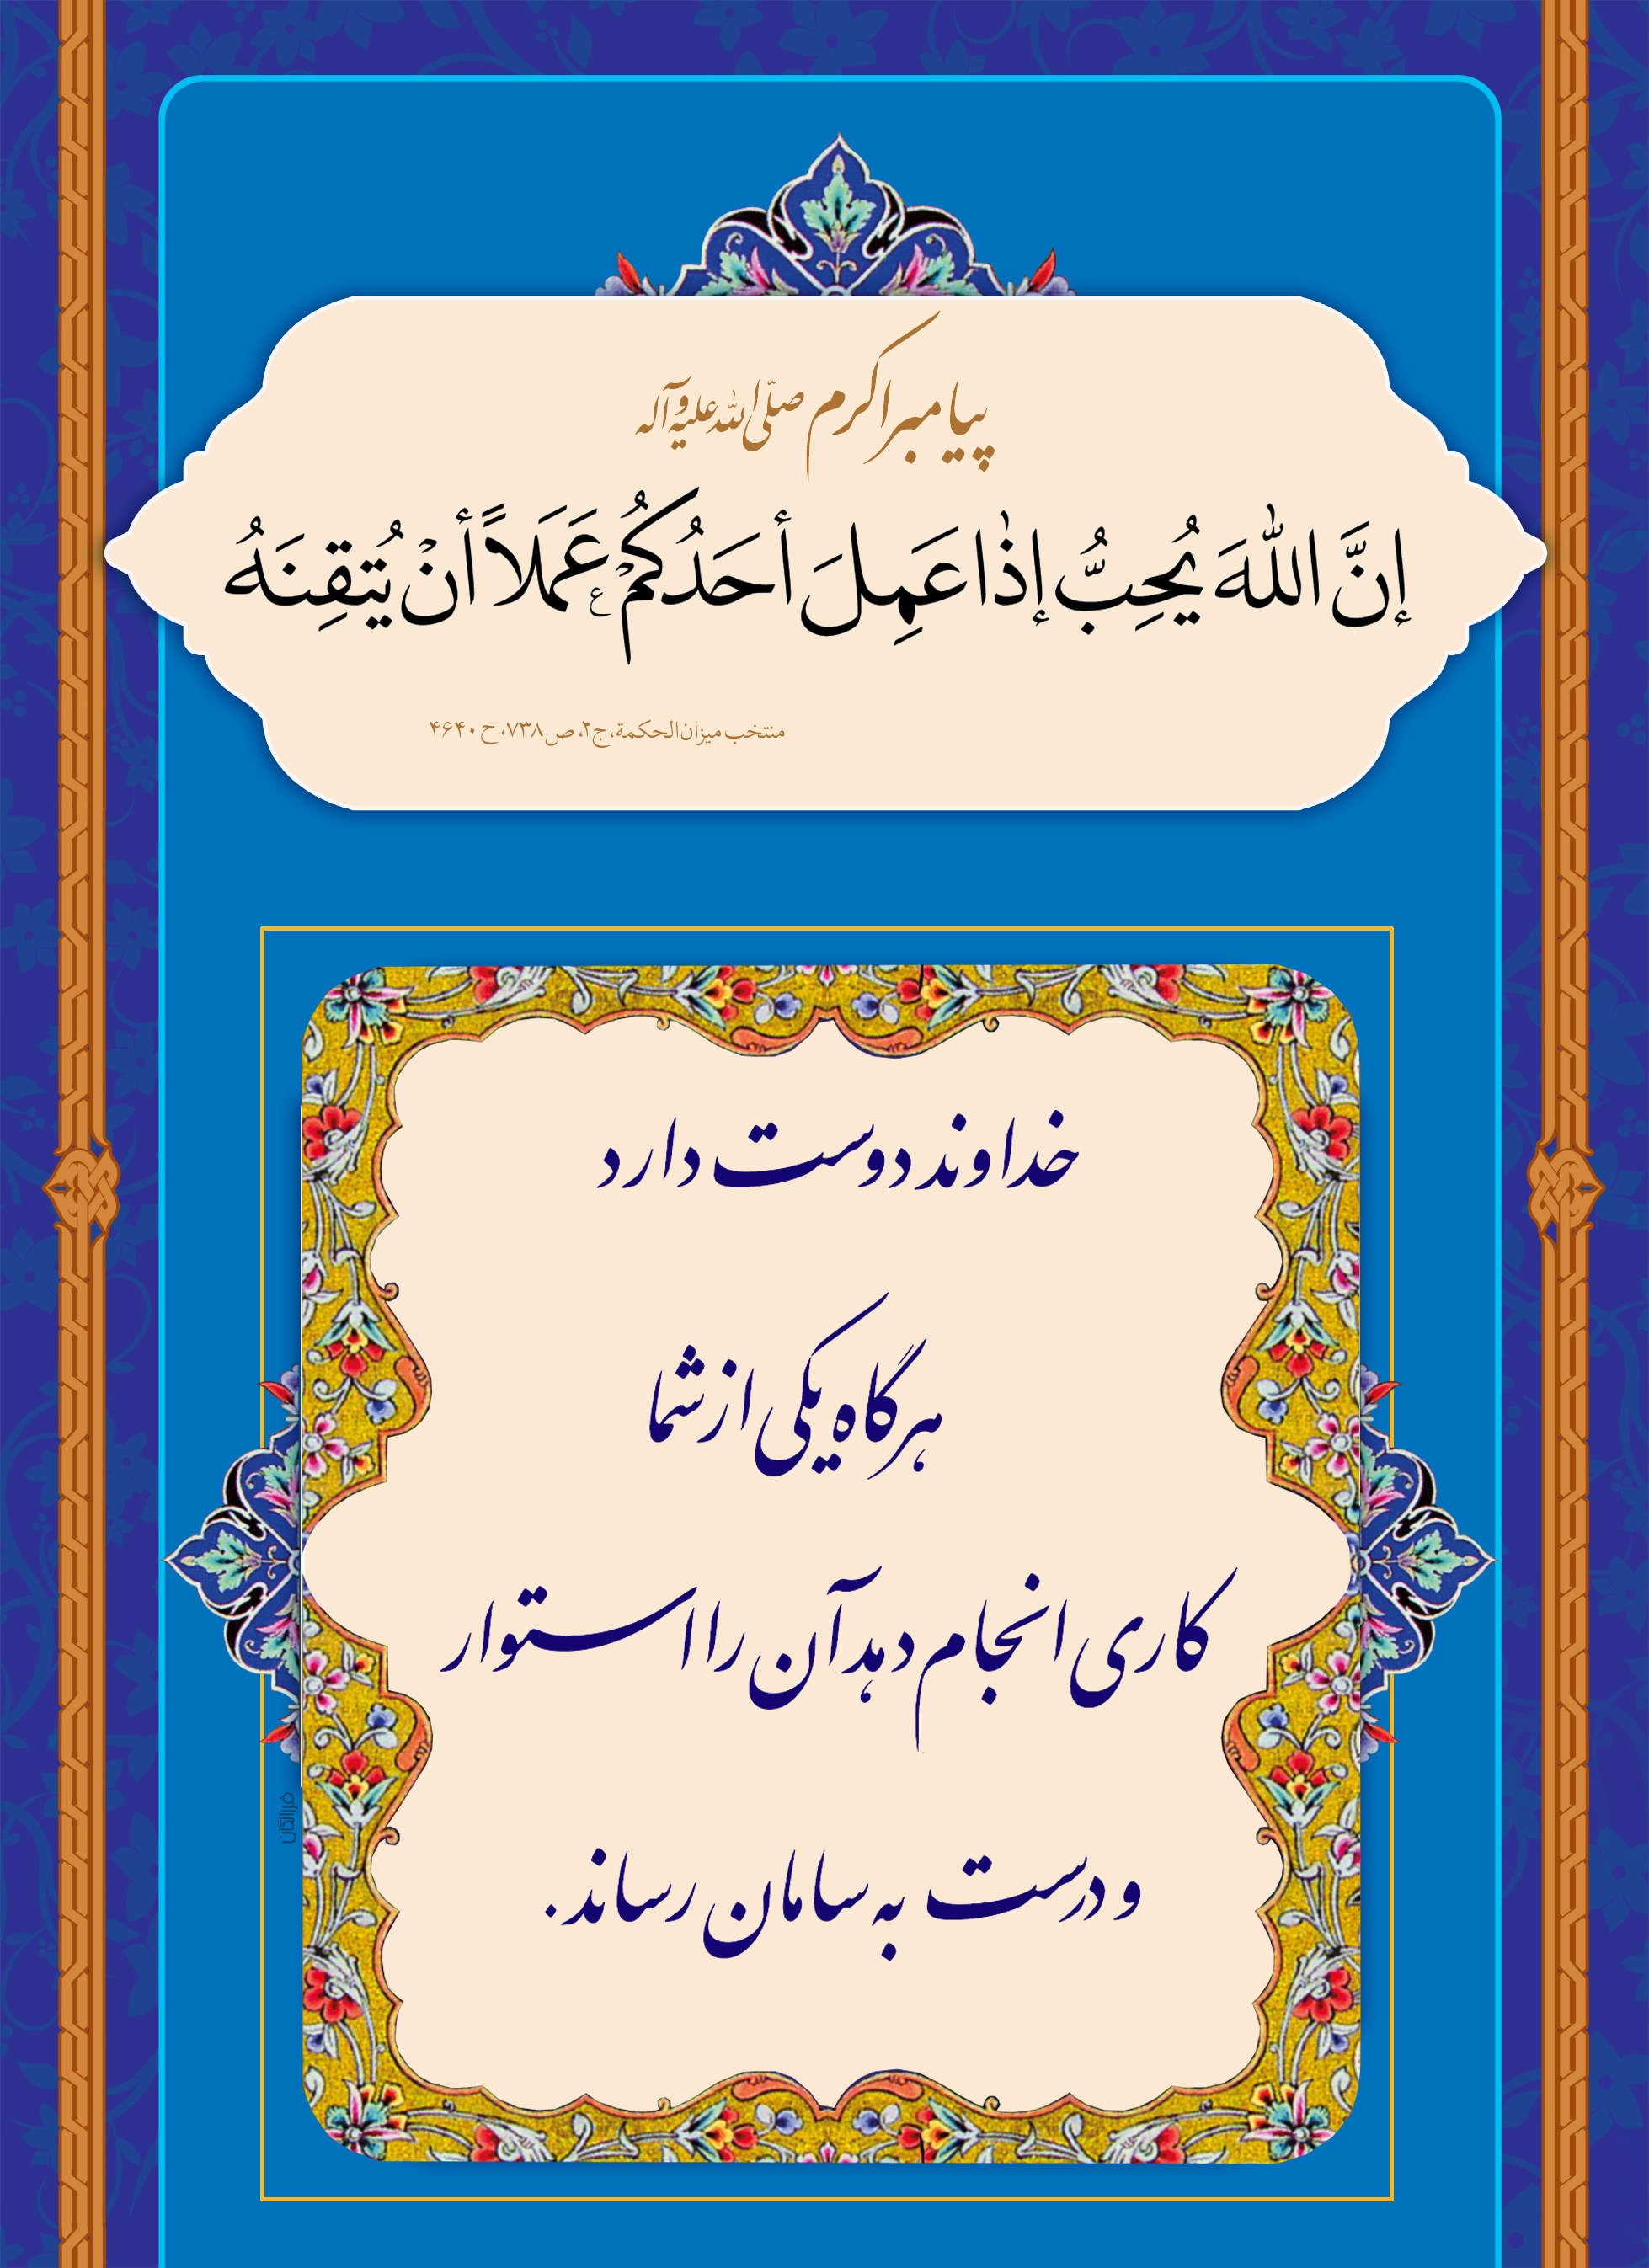 پیامبر اکرم صلّی الله علیه و آله
إنَّ اللهَ یُحِبُّ إذٰا عَمِلَ أحَدُکُمْ عَمَلاً أنْ یُتقِنَهُ
منتخب میزان الحکمة، ج۲، ص۷۳۸، ح۴۶۴۰
خداوند دوست دارد
هرگاه یکی از شما
کاری انجام دهد آن را استوار
و درست به سامان رساند.
فرزانگان